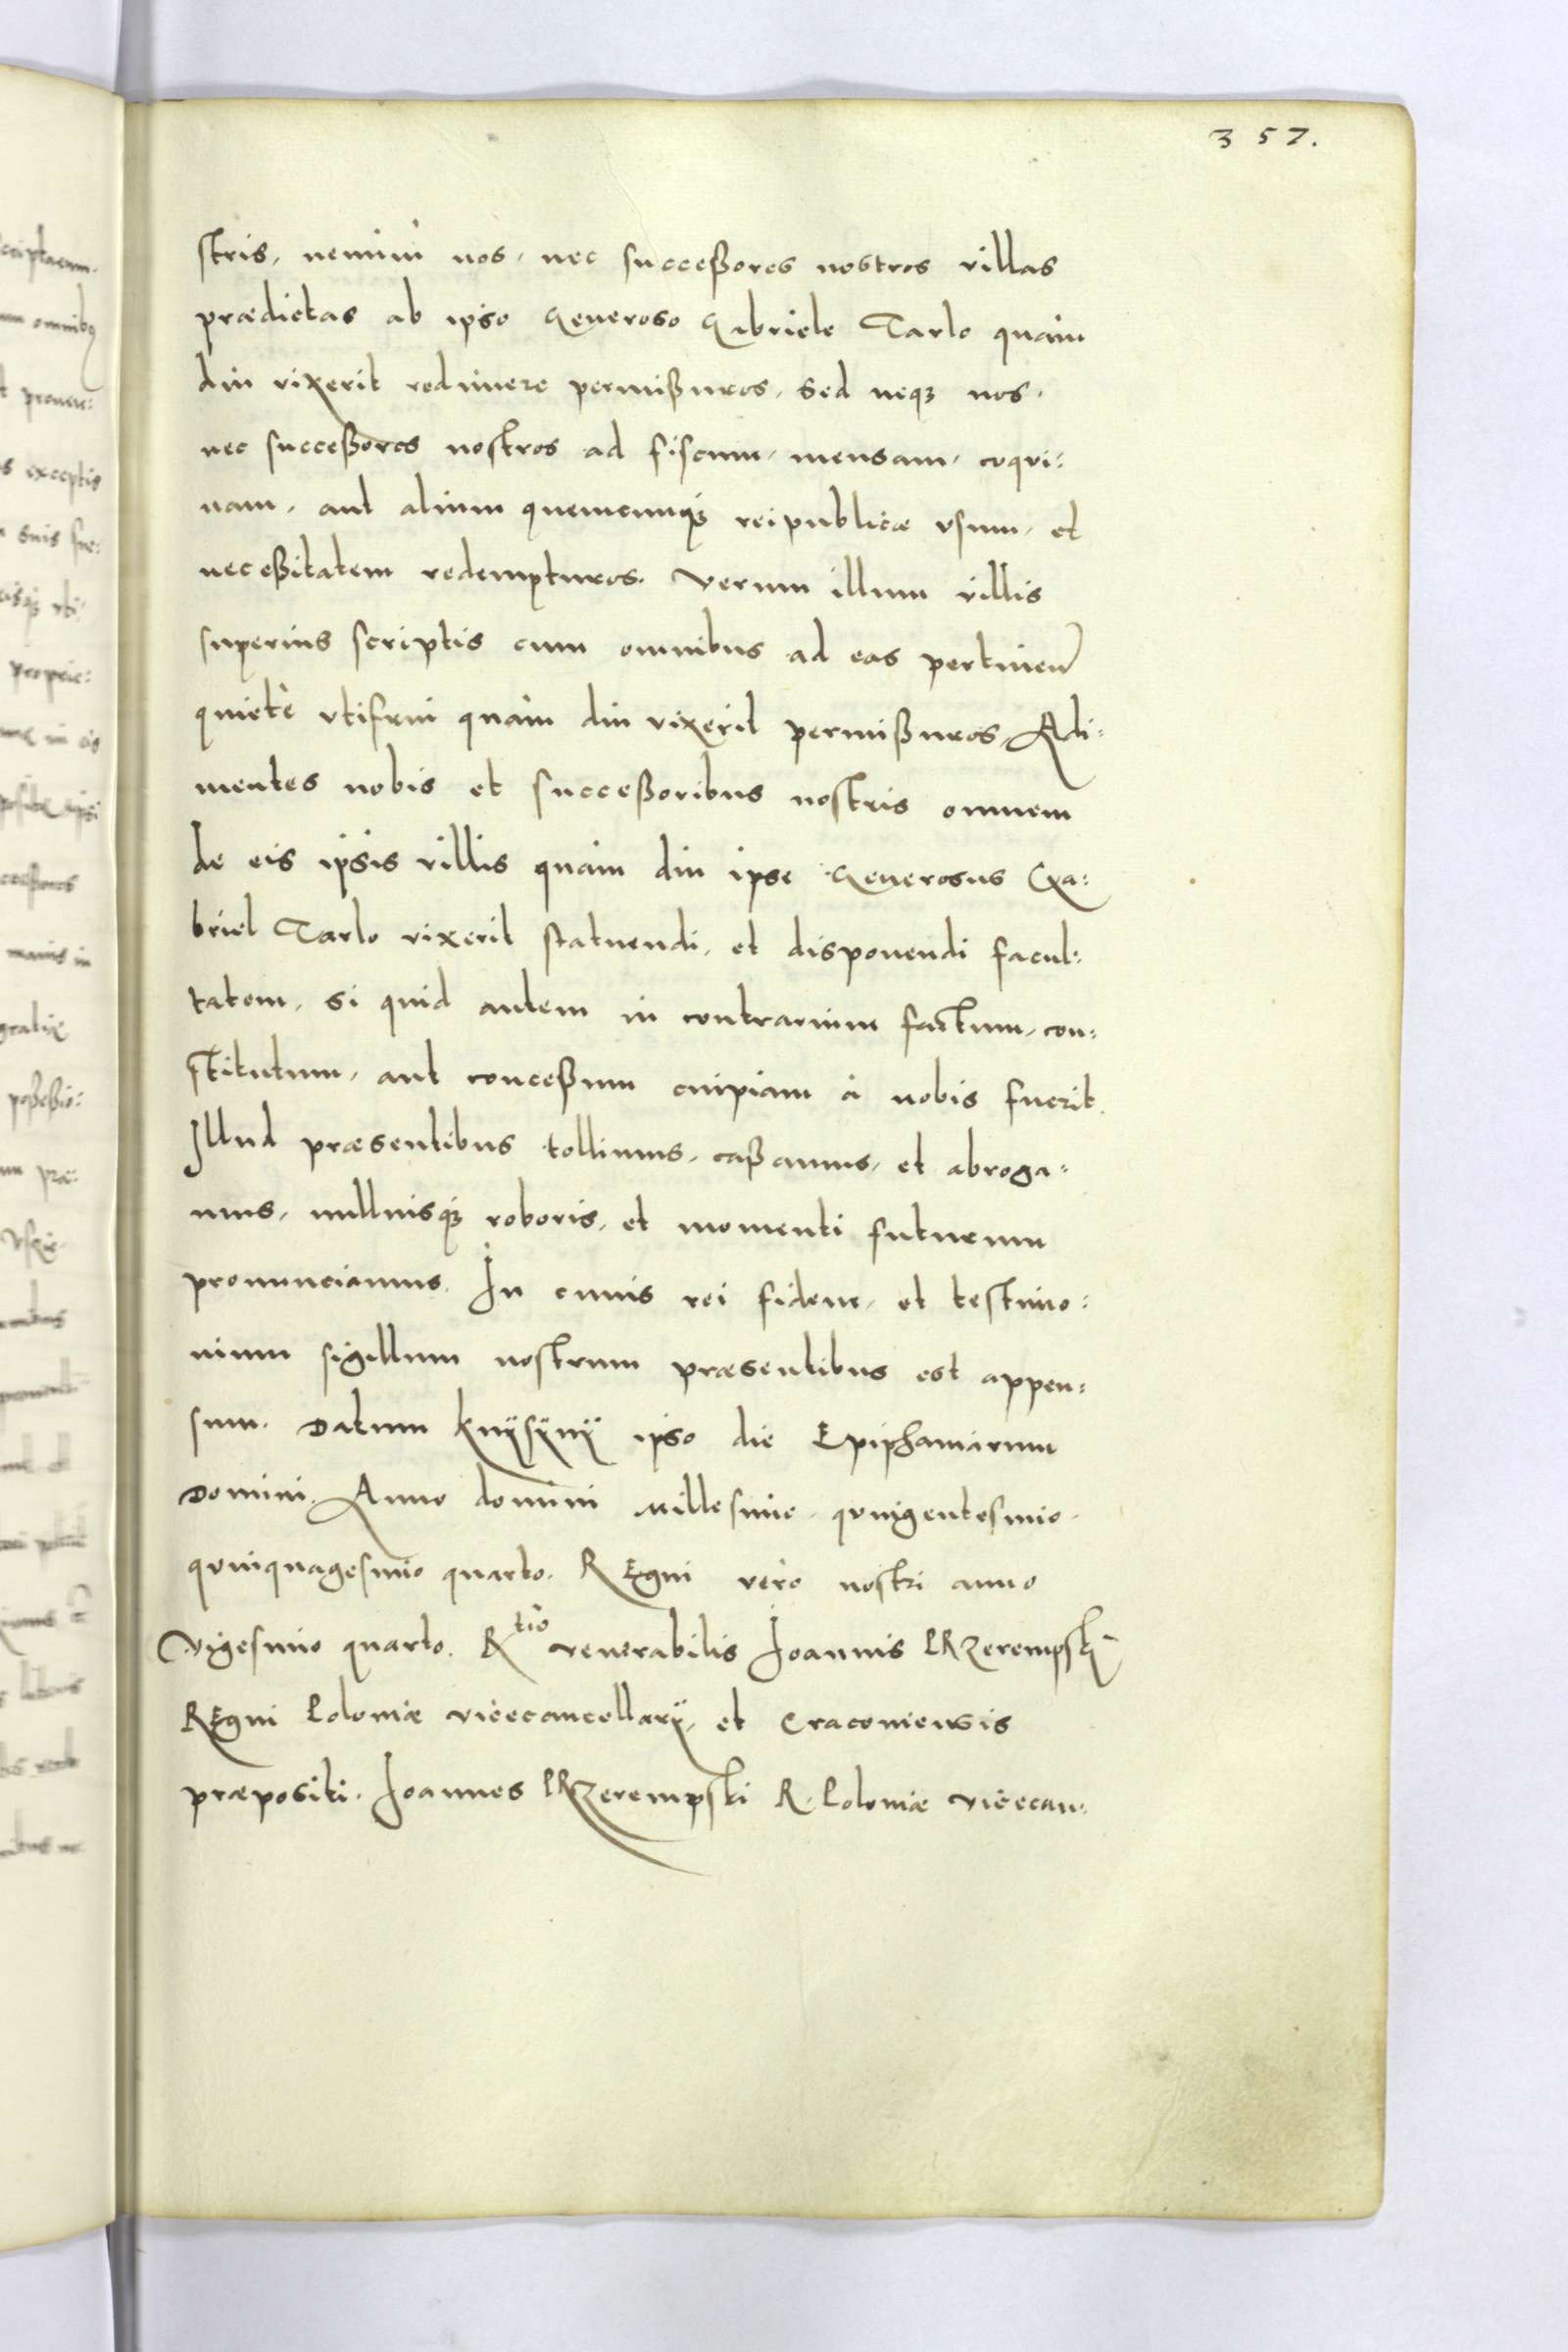 357.
stris, nemini nos, nec successores nostros villas
prædictas ab ipso Generoso Gabriele Tarlo quàm
diu vixerit redimere permißuros. Sed neqз nos,
nec succeßores nostros ad fiscum, mensam, coqui:
nam, aut alium quemcunqз reipublicæ vsum, et
neceßitatem redempturos. Verum illum villis
superius scriptis cum omnibus ad eas pertinen
quietè vtifrui quàm diu vixerit permißuros, Adi:
mentes nobis et succeßoribus nostris omnem
de eis ipsis villis quàm diu ipse Generosus Ga:
briel Tarlo vixerit statuendi, et disponendi facul:
tatem, si quid autem in contrarium factum, con:
stitutum, aut conceßum cuipiam à nobis fuerit.
Illud præsentibus tollimus, caßamus, et abroga:
mus, nulliusqз roboris, et momenti futurum
pronunciamus. In cuius rei fidem, et testimo:
nium sigillum nostrum præsentibus est appen:
sum. Datum Knÿsÿnÿ ipso die Epiphaniarum
Domini. Anno domini Millesimo quingentesimo
quinquagesimo quarto. REgni verò nostri anno
Vigesimo quarto. Rtio venerabilis Joannis PRzerempskj
REgni Poloniæ vicecancellarÿ, et Cracouiensis
præpositi. Joannes PRzerempski R. Poloniæ vicecan: